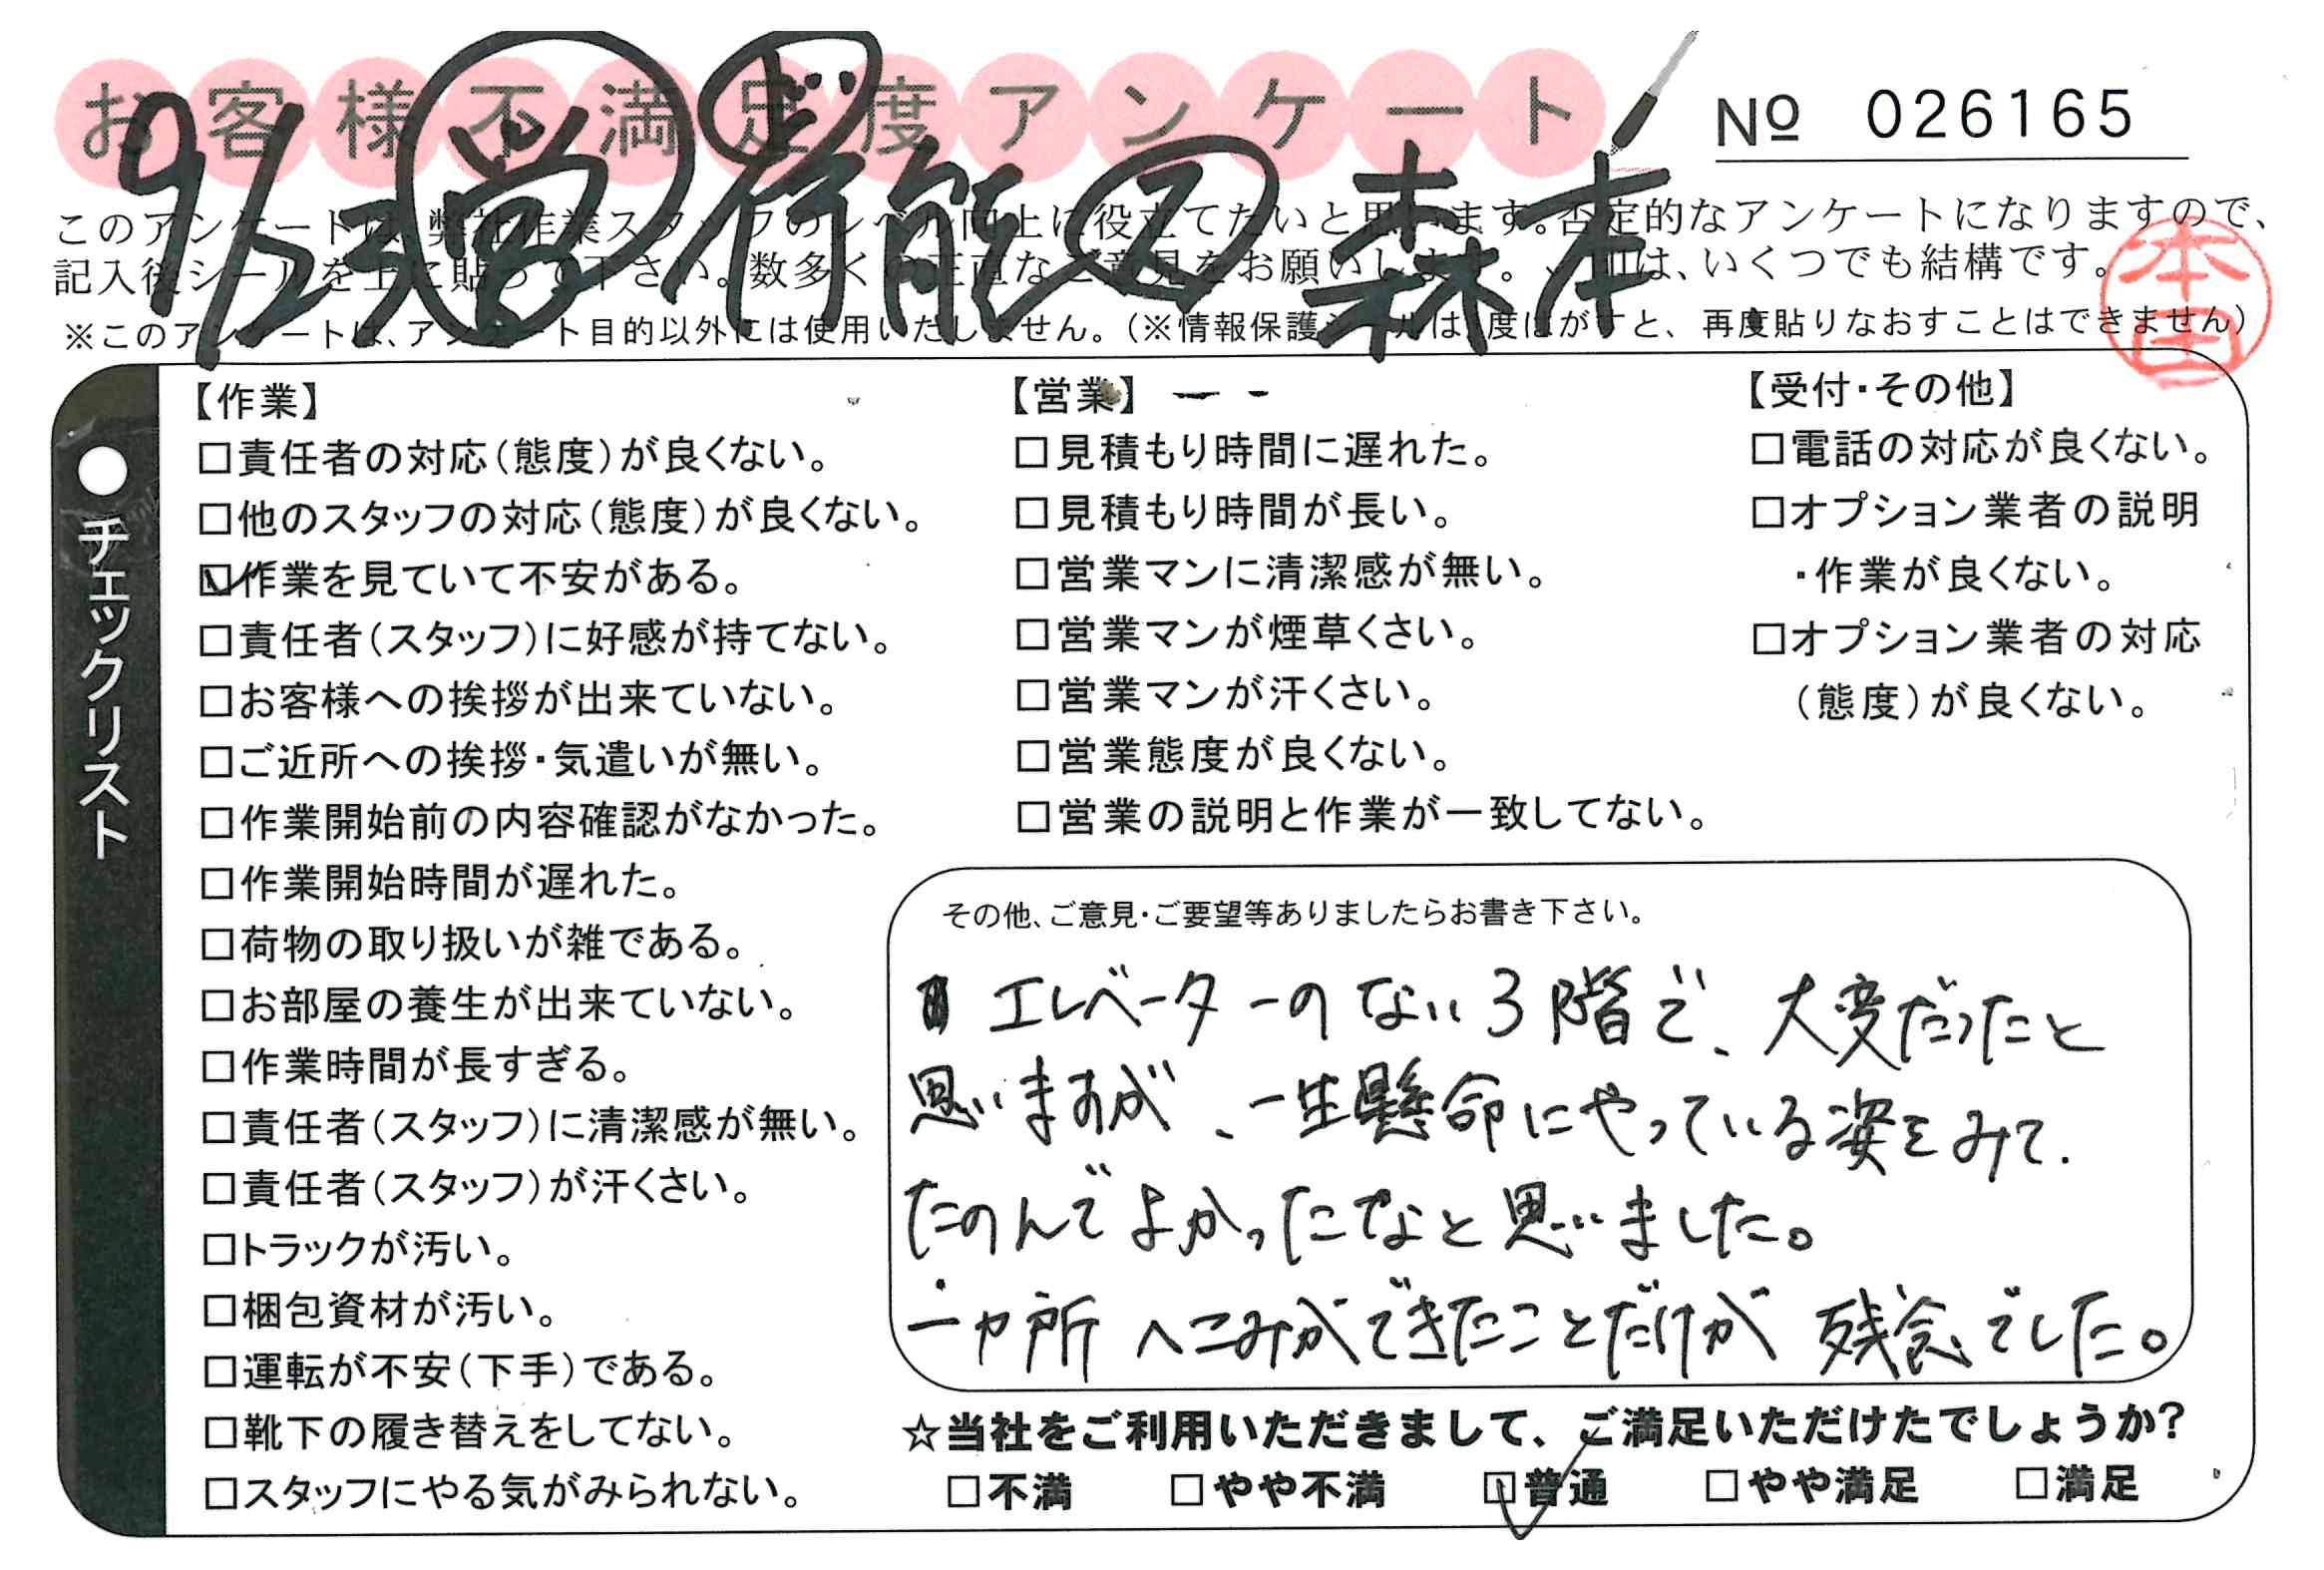 お客様不満足度アンケート
№ 026165
9/23 営 ど 行能② 森本
このアンケートは、弊社作業スタッフのレベル向上に役立てたいと思います。否定的なアンケートになりますので、
記入後シールを上に貼って下さい。数多くの正直なご意見をお願いします。、印は、いくつでも結構です。
本田
※このアンケートは、アンケート目的以外には使用いたしません。(※情報保護シールは1度はがすと、再度貼りなおすことはできません)
●チェックリスト
【作業】
□責任者の対応(態度)が良くない。
□他のスタッフの対応(態度)が良くない。
☑作業を見ていて不安がある。
□責任者(スタッフ)に好感が持てない。
□お客様への挨拶が出来ていない。
□ご近所への挨拶・気遣いが無い。
□作業開始前の内容確認がなかった。
□作業開始時間が遅れた。
□荷物の取り扱いが雑である。
□お部屋の養生が出来ていない。
□作業時間が長すぎる。
□責任者(スタッフ)に清潔感が無い。
□責任者(スタッフ)が汗くさい。
□トラックが汚い。
□梱包資材が汚い。
□運転が不安(下手)である。
□靴下の履き替えをしてない。
□スタッフにやる気がみられない。
【営業】
□見積もり時間に遅れた。
□見積もり時間が長い。
□営業マンに清潔感が無い。
□営業マンが煙草くさい。
□営業マンが汗くさい。
□営業態度が良くない。
□営業の説明と作業が一致してない。
【受付・その他】
□電話の対応が良くない。
□オプション業者の説明
・作業が良くない。
□オプション業者の対応
(態度)が良くない。
その他、ご意見・ご要望等ありましたらお書き下さい。
エレベーターのない3階で、大変だったと
思いますが、一生懸命にやっている姿をみて.
たのんでよかったなと思いました。
一ヵ所へこみができたことだけが残念でした。
☆当社をご利用いただきまして、ご満足いただけたでしょうか?
□不満 □やや不満 ☑普通 □やや満足 □満足